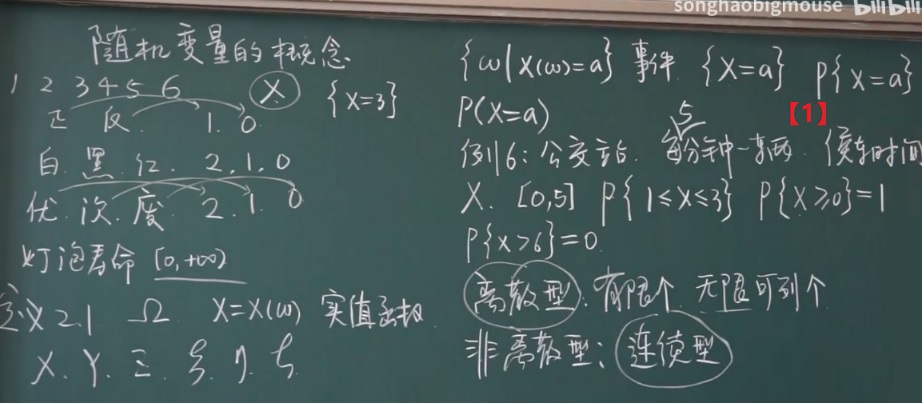 songhaobigmouse bilibili
随机变量的概念
1 2 3 4 5 6 X {X=3}
正 反 1. 0
白. 黑. 红. 2. 1. 0
优. 次. 废. 2. 1. 0
灯泡寿命 [0,+∞)
定义2.1 Ω X=X(ω) 实值函数
X. Y. Z. ξ. η. ζ.
{ω|X(ω)=a} 事件 {X=a} P{X=a}
P(X=a) 【1】
5
例6: 公交车站. 每分钟一辆 候车时间
X. [0,5] P{1≤X≤3} P{X≥0}=1
P{X>6}=0
离散型: 有限个 无限可列个
非离散型: 连续型